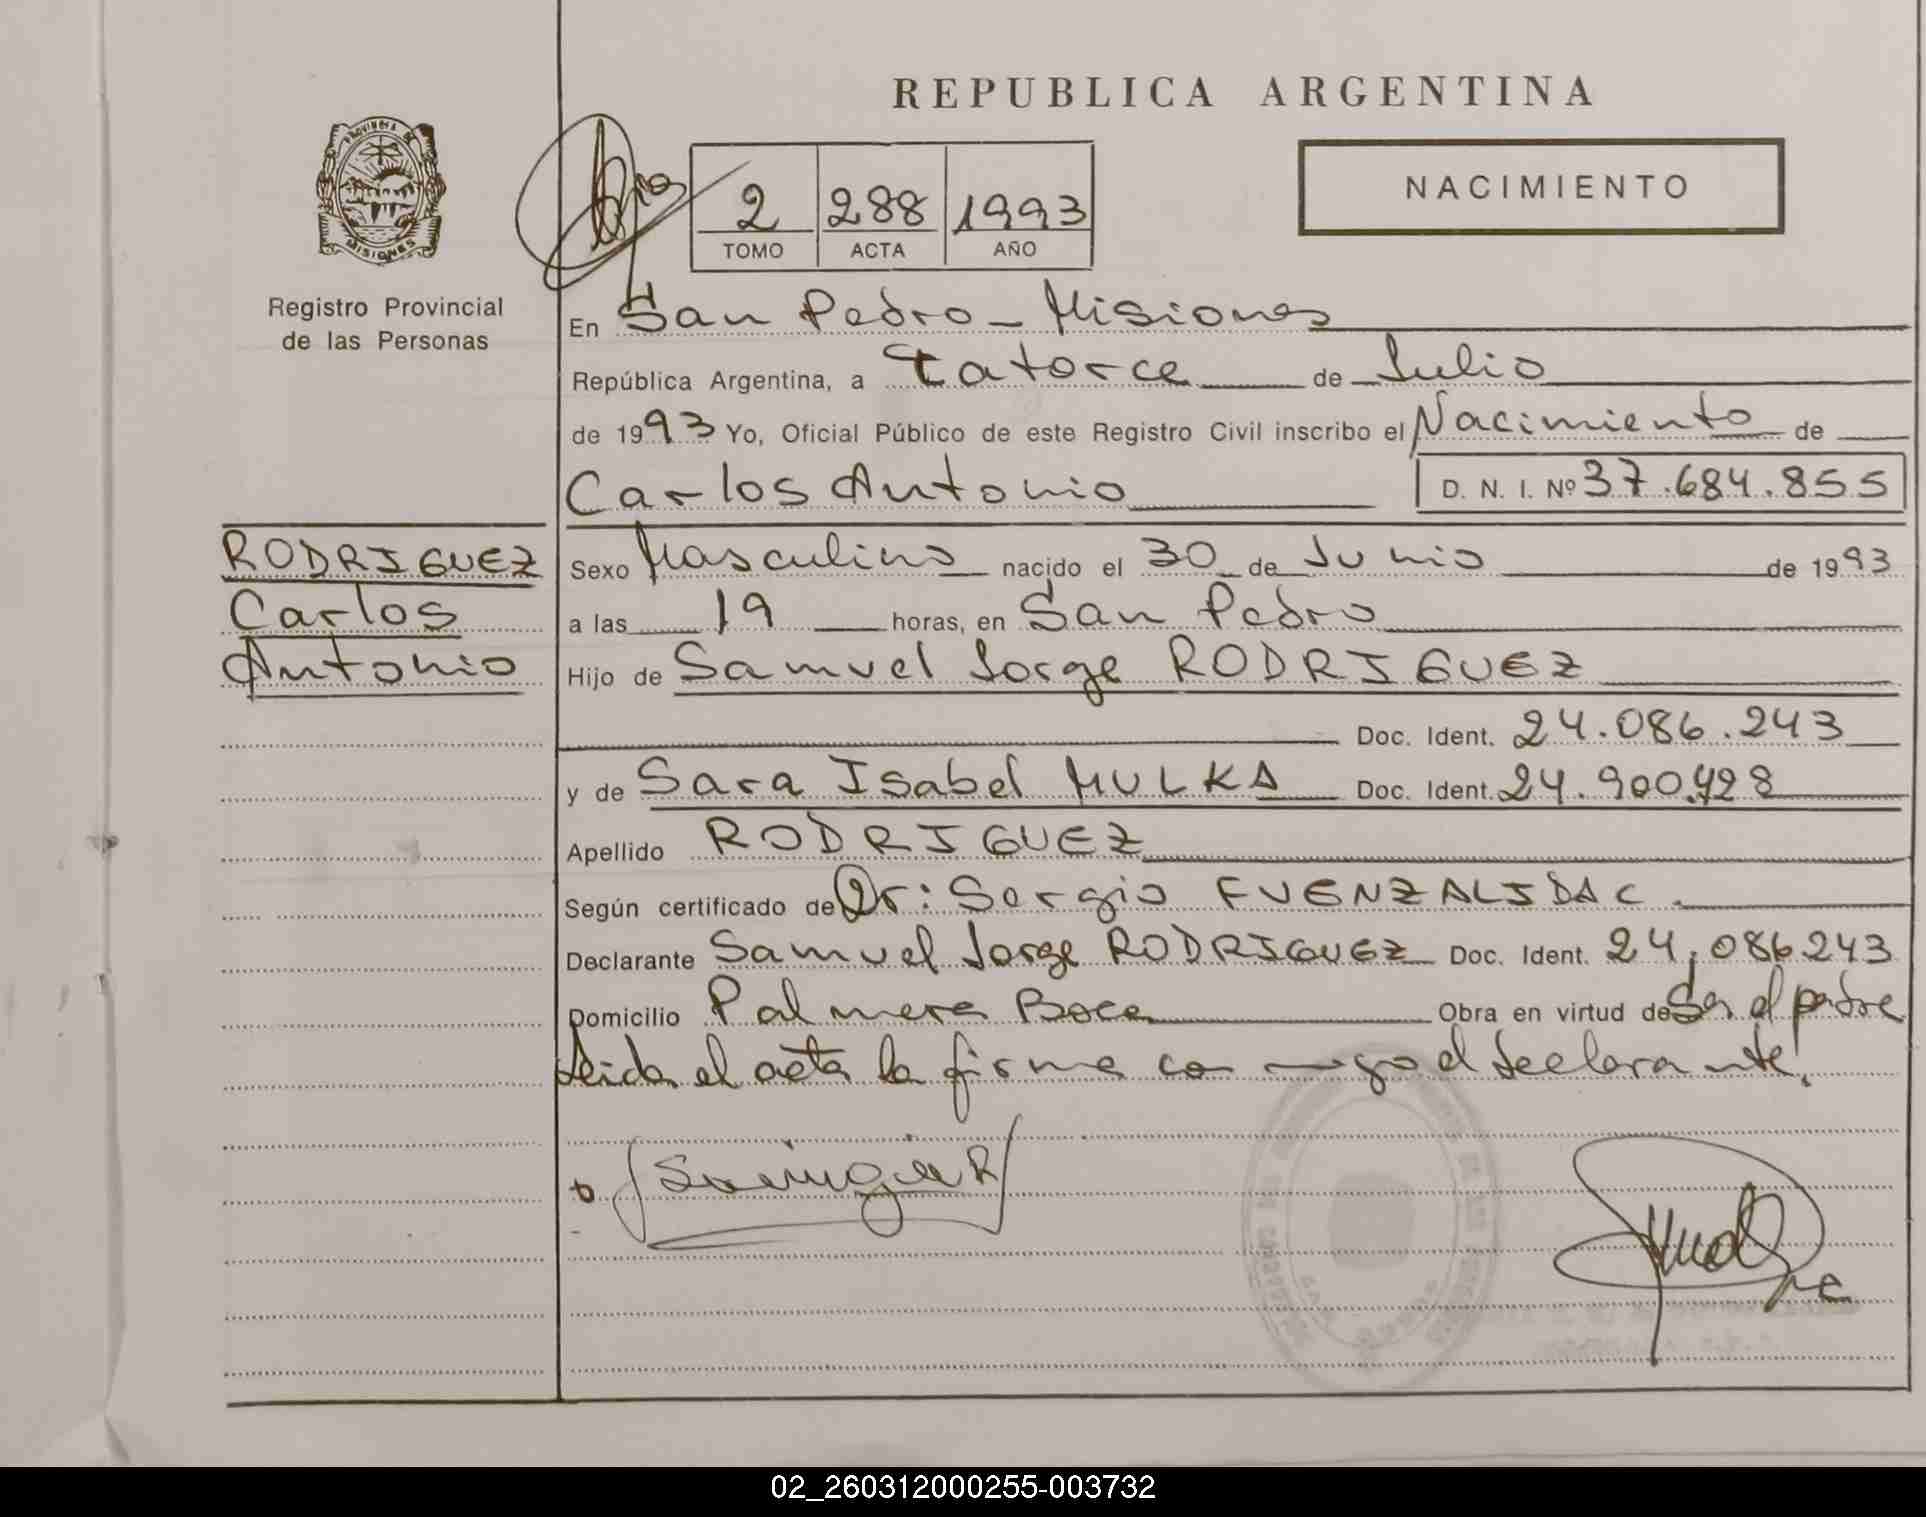 REPUBLICA ARGENTINA
PROVINCIA DE
MISIONES
Registro Provincial
de las Personas
2 288 1993
TOMO ACTA AÑO
NACIMIENTO
En San Pedro - Misiones
República Argentina, a Catorce de Julio
de 1993 Yo, Oficial Público de este Registro Civil inscribo el Nacimiento de
Carlos Antonio D. N. I. Nº 37.684.855
RODRIGUEZ
Carlos
Antonio
Sexo Masculino nacido el 30 de Junio de 1993
a las 19 horas, en San Pedro
Hijo de Samuel Jorge RODRIGUEZ
Doc. Ident. 24.086.243
y de Sara Isabel MULKA Doc. Ident. 24.900.428
Apellido RODRIGUEZ
Según certificado de Dr: Sergio FUENZALIDA C.
Declarante Samuel Jorge RODRIGUEZ Doc. Ident. 24.086243
Domicilio Palmera Boca Obra en virtud de Ser el padre
Leida el acta la firma conmigo el declarante.
02_260312000255-003732